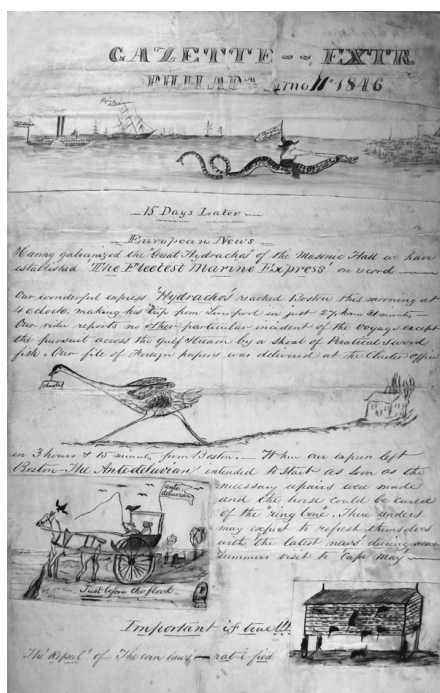 GAZETTE -- EXTR
PHILADA 1846
15 Days Later
European News
Having galvanized the "Great Hydrachos" of the Masonic Hall we have
established 'The Fleetest Marine Express' on record
Our wonderful express 'Hydrachos' reached Boston this morning at
4 oclock, making his trip from Liverpool in just 27 hours 31 minutes
Our rider reports no other particular incident of the voyage except
the pursuit across the Gulf Stream by a shoal of Piratical sword
fish. Our file of Foreign papers was delivered at the Cluster Office
Cluster
in 3 hours & 15 minutes from Boston. When our express left
Boston - The Antedeluvian intended to start as soon as the
necessary repairs were made
and the horse could be cured
of the "ring bone". Their readers
may expect to refresh themselves
with the latest news during
summer visit to Cape May
ante
deluvian
Just before the flood
Important if true!!!
The Repeal of The corn laws - rat-i-fied